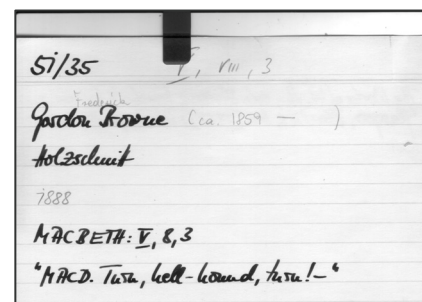 51/35 V, VIII, 3
Frederick
Gordon Browne (ca. 1859 — )
Holzschnitt
1888
MACBETH: V, 8,3
"MACD. Turn, hell-hound, turn!—"